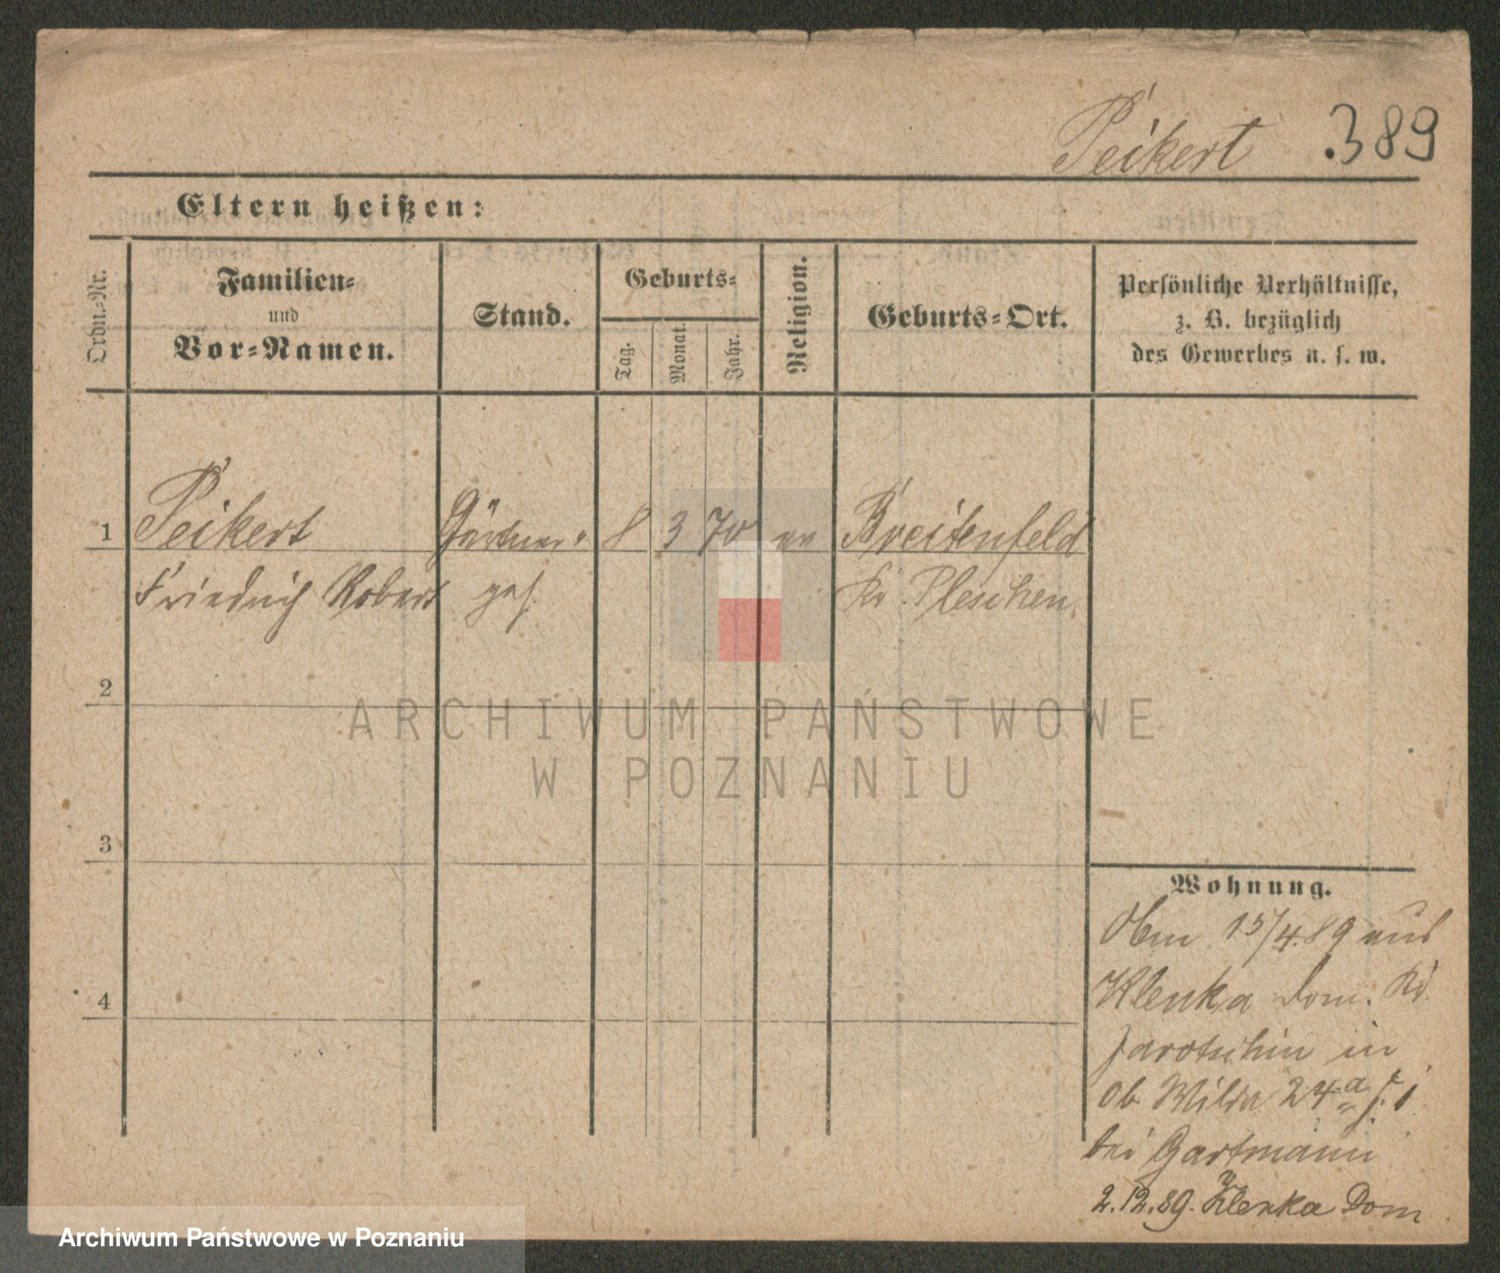 Peikert .389
Eltern heißen:
Ordn.-Nr.
Familien-
und
Vor-Namen.
Stand.
Geburts-
Tag.
Monat.
Jahr.
Religion.
Geburts-Ort.
Persönliche Verhältnisse,
z. B. bezüglich
des Gewerbes u. s. w.
1 Peikert Gärtner- 8 3 70 ev Breitenfeld
Friedrich Robert geh. Kr. Pleschen
2
3
4
Wohnung.
15/4.89 aus
Klenka Dom. Kr
Jarotschin in
Ob Wilda 24a
bei Gartmann
2.12.89. Klenka Dom
ARCHIWUM PAŃSTWOWE
W POZNANIU
Archiwum Państwowe w Poznaniu